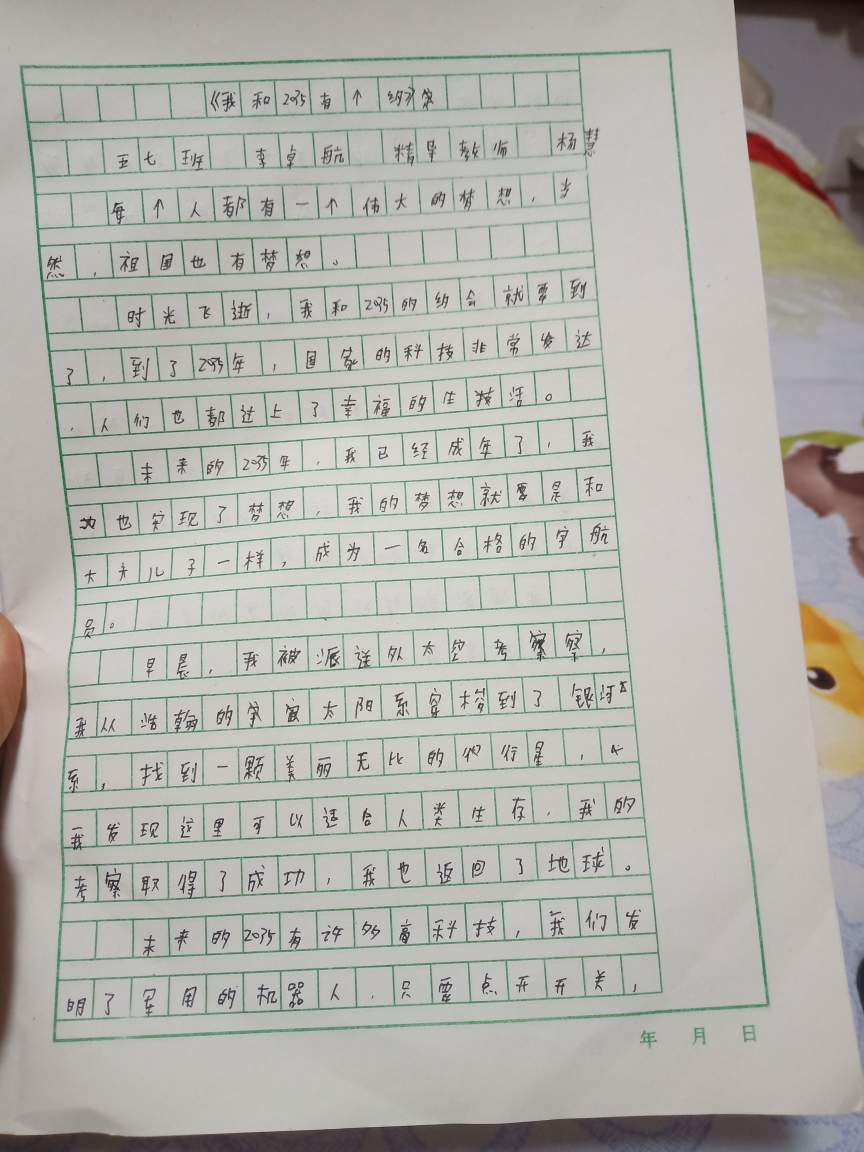 《我和2035有个约定
五七班 李卓航 指导教师 杨慧
每个人都有一个伟大的梦想，当
然，祖国也有梦想。
时光飞逝，我和2035的约会就要到
了，到了2035年，国家的科技非常发达
，人们也都过上了幸福的生活。
未来的2035年，我已经成年了，我
也实现了梦想，我的梦想就要是和
大头儿子一样，成为一名合格的宇航
员。
早晨，我被派送外太空考察，
我从浩瀚的宇宙太阳系穿梭到了银河
系，找到一颗美丽无比的行星，
我发现这里可以适合人类生存，我的
考察取得了成功，我也返回了地球。
未来的2035有许多高科技，我们发
明了军用的机器人，只要点开开关，
年 月 日